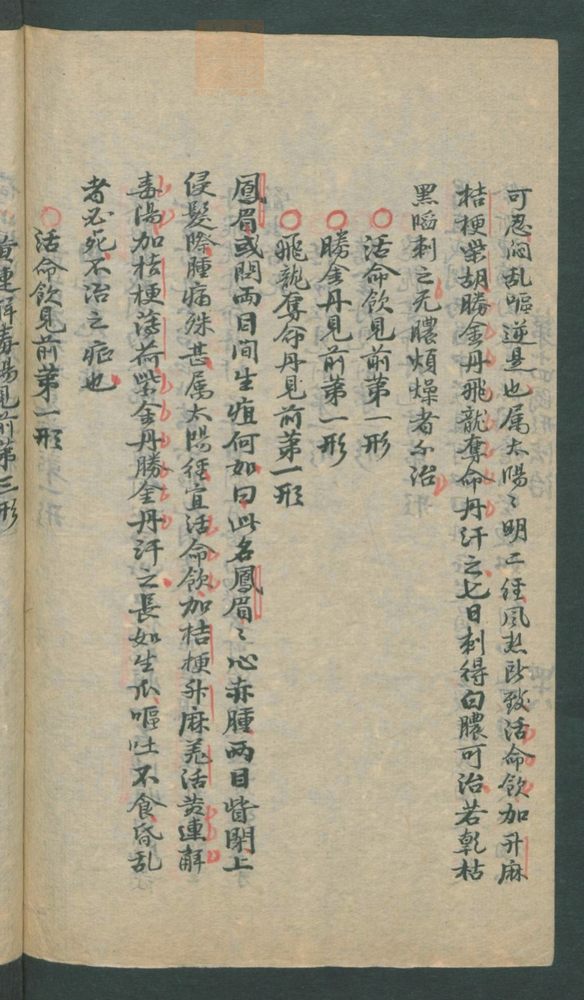 可忍悶亂嘔逆是也属太陽〻明二経風热所致活命飲加升麻
桔梗柴胡勝金丹飛龍奪命丹汗之七日刺得白膿可治若乾枯
黑陷刺之无膿煩燥者不治
〇活命飲見前第一形
〇勝金丹見前第一形
〇飛龍奪命丹見前第一形
鳳眉或問兩目間生疽何如曰此名鳳眉〻心赤腫兩目皆閉上
侵髮際腫痛殊甚属太陽経宜活命飲加桔梗升麻羌活黄連解
毒湯加桔梗薄荷紫金丹勝金丹汗之長如生瓜嘔吐不食昏乱
者必死不治之症也
〇活命飲見前第一形
黄連解毒湯見前第三形